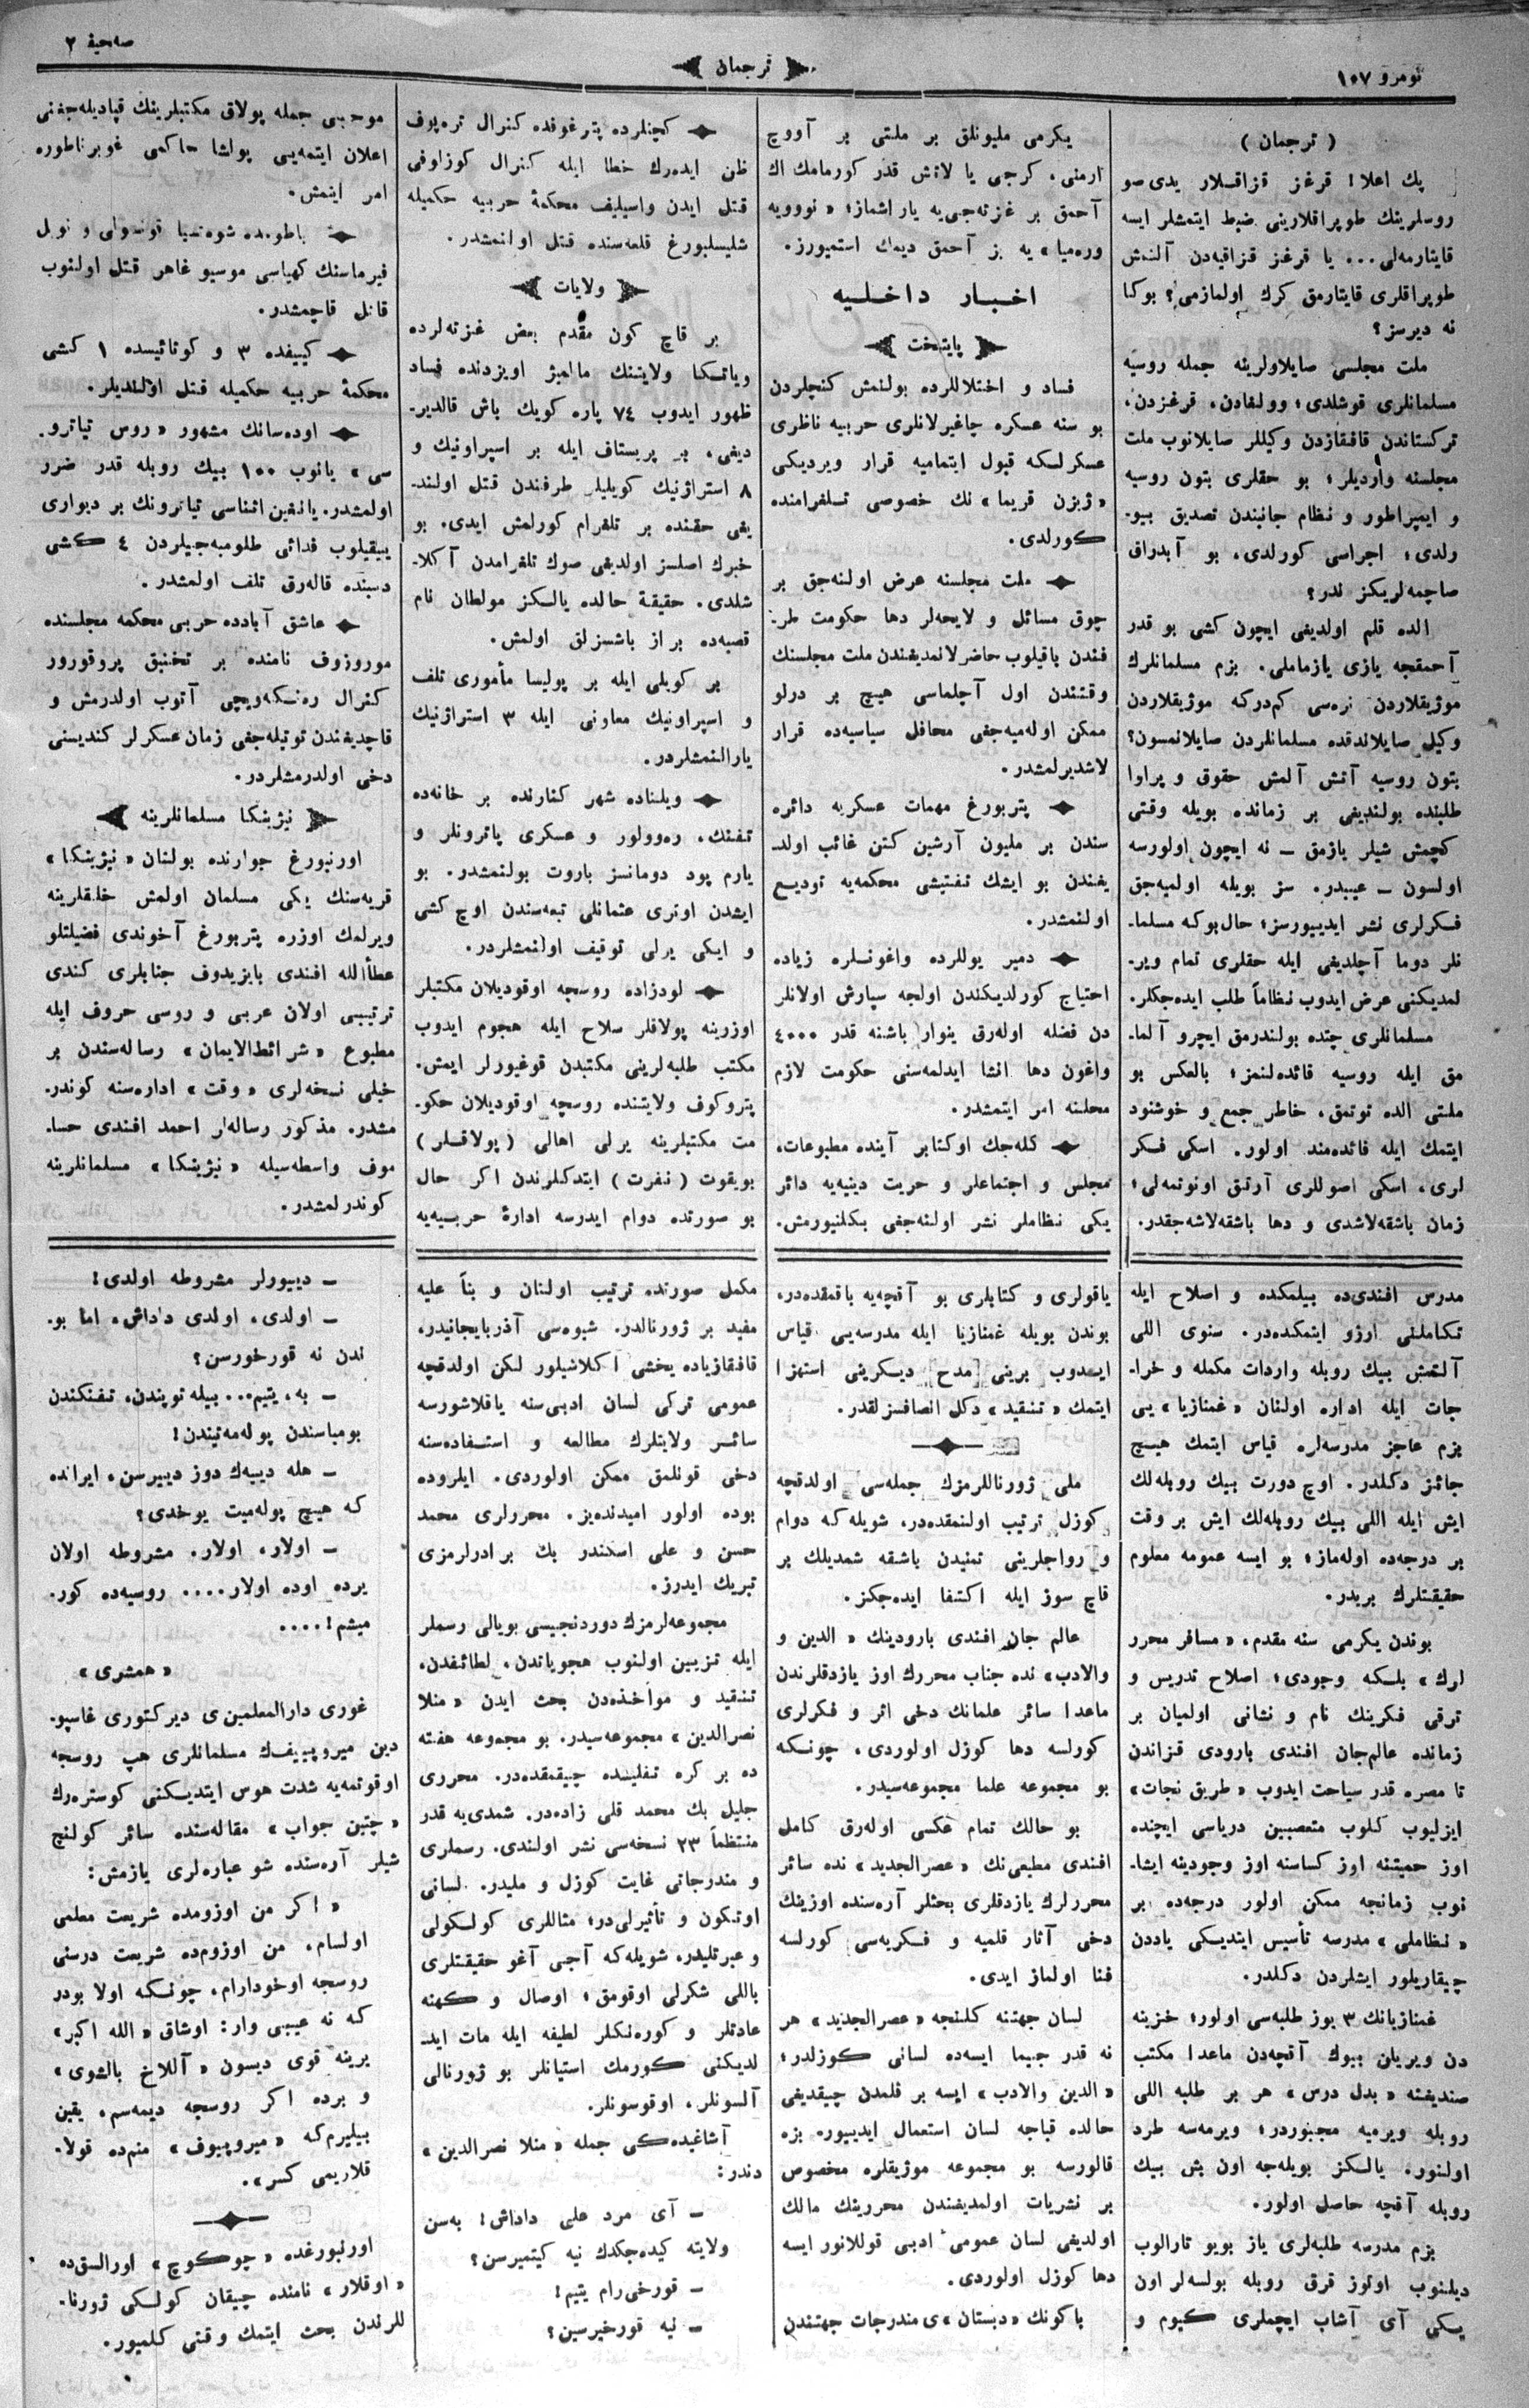 نومرو ١٠٧
ترجمان
صحیفه ٢
( ترجمان )
پك اعلا! قرغز قزاقلار یدی صو
روسلرینك طوپراقلارینی ضبط ایتمشلر ایسه
قایتارمه‌لی... یا قرغز قزاقیه‌دن آلنمش
طوپراقلری قایتارمق كرك اولمازمی؟ بوكا
نه دیرسز؟
ملت مجلسی صایلاولرینه جمله روسیه
مسلمانلری قوشلدی؛ وولغادن، قرغزدن،
تركستاندن قافقازدن وكیللر صایلانوب ملت
مجلسنه واردیلر؛ بو حقلری بتون روسیه
و ایمپراطور و نظام جانبندن تصدیق بیو-
رلدی؛ اجراسی كورلدی، بو آبدراق
صاچمه‌لریكز ندر؟
الده قلم اولدیغی ایچون كشی بو قدر
آحمقجه یازی یازماملی. بزم مسلمانلرك
موژیقلاردن نره‌سی كم‌دركه موژیقلاردن
وكیل صایلاندقده مسلمانلردن صایلانمسون؟
بتون روسیه آتش آلمش حقوق و پراوا
طلبنده بولندیغی بر زمانده بویله وقتی
كچمش شیلر یازمق ــ نه ایچون اولورسه
اولسون ــ عیبدر. سز بویله اولمیه‌جق
فكرلری نشر ایدییورسز؛ حال‌بوكه مسلما-
نلر دوما آچلدیغی ایله حقلری تمام ویر-
لمدیكنی عرض ایدوب نظاماً طلب ایده‌جكلر.
مسلمانلری چتده بولندرمق ایچرو آلما-
مق ایله روسیه فائده‌لنمز؛ بالعكس بو
ملتی الده توتمق، خاطر جمع و خوشنود
ایتمك ایله فائده‌مند اولور. اسكی فكر
لری، اسكی اصوللری آرتق اونوتمه‌لی؛
زمان باشقه‌لاشدی و دها باشقه‌لاشه‌جقدر.
یكرمی ملیونلق بر ملتی بر آووچ
ارمنی، كرجی یا لاتش قدر كورمامك اك
آحمق بر غزته‌جی‌یه یاراشماز؛ «نوویه
وره‌میا» یه بز آحمق دیمك استمیورز.
اخبار داخلیه
پایتخت
فساد و اختلاللرده بولنمش كنچلردن
بو سنه عسكره چاغیرلانلری حربیه ناظری
عسكرلسكه قبول ایتمامیه قرار ویردیكی
«ژیزن قریما» نك خصوصی تلغرامنده
كورلدی.
ملت مجلسنه عرض اولنه‌جق بر
چوق مسائل و لایحه‌لر دها حكومت طر-
فندن یاقیلوب حاضرلانمدیغندن ملت مجلسنك
وقتندن اول آچلماسی هیچ بر درلو
ممكن اوله‌میه‌جغی محافل سیاسیه‌ده قرار
لاشدیرلمشدر.
پتربورغ مهمات عسكریه دائره
سندن بر ملیون آرشین كتن غائب اولد-
یغندن بو ایشك تفتیشی محكمه‌یه تودیع
اولنمشدر.
دمیر یوللرده واغونلره زیاده
احتیاج كورلدیكندن اولجه سپارش اولانلر
دن فضله اوله‌رق ینوار باشنه قدر ٤٠٠٠
واغون دها انشا ایدلمه‌سنی حكومت لازم
محلنه امر ایتمشدر.
كله‌جك اوكتابر آینده مطبوعات،
مجلس و اجتماعلر و حریت دینیه‌یه دائر
یكی نظاملر نشر اولنه‌جغی بكلنیورمش.
كچنلرده پترغوفده كنرال تره‌پوف
ظن ایده‌رك خطا ایله كنرال كوزلوفی
قتل ایدن واسیلیف محكمهٔ حربیه حكمیله
شلیسلبورغ قلعه‌سنده قتل اولنمشدر.
ولایات
بر قاچ كون مقدم بعض غزته‌لرده
ویاتسكا ولایتنك مالمیژ اویزدنده فساد
ظهور ایدوب ٧٤ پاره كویك باش قالدیر-
دیغی، بر پریستاف ایله بر اسپراونیك و
٨ استراژنیك كویلیلر طرفندن قتل اولند-
یغی حقنده بر تلغرام كورلمش ایدی. بو
خبرك اصلسز اولدیغی صوك تلغرامدن آكلا-
شلدی. حقیقة حالده یالكز مولطان نام
قصبه‌ده براز باشسزلق اولمش.
بر كویلی ایله بر پولیسا مأموری تلف
و اسپراونیك معاونی ایله ٣ استراژنیك
یارالنمشلردر.
ویلناده شهر كنارنده بر خانه‌ده
تفنك، ره‌وولور و عسكری پاترونلر و
یارم پود دومانسز باروت بولنمشدر. بو
ایشدن اوتری عثمانلی تبعه‌سندن اوچ كشی
و ایكی یرلی توقیف اولنمشلردر.
لودزاده روسجه اوقودیلان مكتبلر
اوزرینه پولاقلر سلاح ایله هجوم ایدوب
مكتب طلبه‌لرینی مكتبدن قوغیورلر ایمش.
پتروكوف ولایتنده روسچه اوقودیلان حكو-
مت مكتبلرینه یرلی اهالی (پولاقلر)
بویقوت (نفرت) ایتدكلرندن اكر حال
بو صورتده دوام ایدرسه ادارهٔ حربییه‌یه
موجبی جمله پولاق مكتبلرینك قپادیله‌جغنی
اعلان ایتمه‌یی پولشا حاكمی غوبرناطوره
امر ایتمش.
باطومده شوه‌تسیا قونسولی و نوبل
فیرماسنك كهیاسی موسیو غاهر قتل اولنوب
قاتل قاچمشدر.
كییفده ٣ و كوتائیسده ١ كشی
محكمهٔ حربیه حكمیله قتل اولندیلر.
اوده‌سانك مشهور «روس تیاترو-
سی» یانوب ١٠٠ بیك روبله قدر ضرر
اولمشدر. یانغین اثناسی تیاترونك بر دیواری
ییقیلوب فدائی طلومبه‌جیلردن ٤ كشی
دسبنده قاله‌رق تلف اولمشدر.
عاشق آبادده حربی محكمه مجلسنده
موروزوف نامنده بر تخنیق پروقورور
كنرال رینكه‌ویچی آتوب اولدرمش و
قاچدیغندن توتیله‌جغی زمان عسكرلر كندیسنی
دخی اولدرمشلردر.
نیژینكا مسلمانلرینه
اورنبورغ جوارنده بولنان «نیژینكا»
قریه‌سنك یكی مسلمان اولمش خلقلرینه
ویرلمك اوزره پتربورغ آخوندی فضیلتلو
عطأالله افندی بایزیدوف جنابلری كندی
ترتیبی اولان عربی و روسی حروف ایله
مطبوع «شرائط‌الایمان» رساله‌سندن بر
خیلی نسخه‌لری «وقت» اداره‌سنه كوندر-
مشدر. مذكور رساله‌لر احمد افندی حسا-
موف واسطه‌سیله «نیژینكا» مسلمانلرینه
كوندرلمشدر.
مدرس افندی‌ده بیلمكده و اصلاح ایله
تكاملنی آرزو ایتمكده‌در. سنوی اللی
آلتمش بیك روبله واردات مكمله و خرا-
جات ایله اداره اولنان «غمنازیا» یی
بزم عاجز مدرسه‌لره قیاس ایتمك هیچ
جائز دكلدر. اوچ دورت بیك روبله‌لك
ایش ایله اللی بیك روبله‌لك ایش بر وقت
بر درجه‌ده اوله‌ماز؛ بو ایسه عمومه معلوم
حقیقتلرك بریدر.
بوندن یكرمی سنه مقدم، «مسافر محرر
لرك» بلكه وجودی؛ اصلاح تدریس و
ترقی فكرینك نام و نشانی اولمیان بر
زمانده عالم‌جان افندی بارودی قزاندن
تا مصره قدر سیاحت ایدوب «طریق نجات»
ایزلیوب كلوب متعصبین دریاسی ایچنده
اوز حمیتنه اوز كساسنه اوز وجودینه ایشا-
نوب زمانجه ممكن اولور درجه‌ده بر
«نظاملی» مدرسه تأسیس ایتدیكی یاددن
چیقاریلور ایشلردن دكلدر.
غمنازیانك ٣ یوز طلبه‌سی اولور؛ خزینه
دن ویریلن بیوك آقچه‌دن ماعدا مكتب
صندیغنه «بدل درس» هر بر طلبه اللی
روبله ویرمیه مجبوردر؛ ویرمه‌سه طرد
اولنور. یالكز بویله‌جه اون بش بیك
روبله آقچه حاصل اولور.
بزم مدرسه طلبه‌لری یاز بویو تارالوب
دیلنوب اوتوز قرق روبله بولسه‌لر اون
یكی آی آشاب ایچملری كیوم و
یاقولری و كتابلری بو آقچه‌یه باقمقده‌در،
بوندن بویله غمنازیا ایله مدرسه‌یی قیاس
ایدوب برینی مدح دیكرینی استهزا
ایتمك «تنقید» دكل انصافسزلقدر.
ملی ژورناللرمزك جمله‌سی اولدقچه
كوزل ترتیب اولنمقده‌در، شویله‌كه دوام
و رواجلرینی تمنیدن باشقه شمدیلك بر
قاچ سوز ایله اكتفا ایده‌جكز.
عالم جان افندی بارودینك «الدین و
والادب» نده جناب محررك اوز یازدقلرندن
ماعدا سائر علمانك دخی اثر و فكرلری
كورلسه دها كوزل اولوردی، چونكه
بو مجموعه علما مجموعه‌سیدر.
بو حالك تمام عكسی اوله‌رق كامل
افندی مطیعی‌نك «عصرالجدید» نده سائر
محررلرك یازدقلری بحثلر آره‌سنده اوزینك
دخی آثار قلمیه و فكریه‌سی كورلسه
فنا اولماز ایدی.
لسان جهتنه كلنجه «عصرالجدید» هر
نه قدر جیما ایسه‌ده لسانی كوزلدر؛
«الدین والادب» ایسه بر قلمدن چیقدیغی
حالده قباجه لسان استعمال ایدییور. بزه
قالورسه بو مجموعه موژیقلره مخصوص
بر نشریات اولمدیغندن محررینك مالك
اولدیغی لسان عمومی ادبی قوللانور ایسه
دها كوزل اولوردی.
باكونك «دبستان»ی مندرجات جهتندن
مكمل صورتده ترتیب اولنان و بناً علیه
مفید بر ژورنالدر. شیوه‌سی آذربایجانیدر،
قافقازیاده یخشی آكلاشیلور لكن اولدقچه
عمومی تركی لسان ادبی‌سنه یاقلاشورسه
سائر ولایتلرك مطالعه و استفاده‌سنه
دخی قونلمق ممكن اولوردی. ایلروده
بوده اولور امیدنده‌یز. محررلری محمد
حسن و علی اسكندر بك برادرلرمزی
تبریك ایدرز.
مجموعه‌لرمزك دوردنجیسی بویالی رسملر
ایله تزیین اولنوب هجویاتدن، لطائفدن،
تنقید و مواخذه‌دن بحث ایدن «منلا
نصرالدین» مجموعه‌سیدر. بو مجموعه هفته
ده بر كره تفلیسده چیقمقده‌در. محرری
جلیل بك محمد قلی زاده‌در. شمدی‌یه قدر
منتظماً ٢٣ نسخه‌سی نشر اولندی. رسملری
و مندرجاتی غایت كوزل و ملیدر. لسانی
اوتكون و تأثیرلی‌در؛ مثاللری كولسكولی
و عبرتلیدر، شویله‌كه آجی آغو حقیقتلری
باللی شكرلی اوقومق؛ اوصال و كهنه
عادتلر و كوره‌نكلر لطیفه ایله مات اید-
لدیكنی كورمك استیانلر بو ژورنالی
آلسونلر، اوقوسونلر.
آشاغیده‌كی جمله «منلا نصرالدین»
دندر:
ــ آی مرد علی داداش! به‌سن
ولایته كیده‌جكدك نیه كیتمیرسن؟
ــ قورخی‌رام یتیم!
ــ نیه قورخیرسین؟
ــ دییورلر مشروطه اولدی!
ــ اولدی، اولدی داداش، اما بو-
ندن نه قورخورسن؟
ــ به، یتیم... بیله توپندن، تفنكندن
بومباسندن پوله‌مه‌تیندن!
ــ هله دییه‌ك دوز دییرسن، ایرانده
كه هیچ پوله‌میت یوخدی؟
ــ اولار، اولار. مشروطه اولان
یرده اوده اولار.... روسیه‌ده كور-
میشم!....
«همشری»
غوری دارالمعلمین‌ی دیركتوری غاسپو-
دین میروپییف‌ك مسلمانلری هپ روسجه
اوقوتمه‌یه شدت هوس ایتدیكنی كوستره‌رك
«چتین جواب» مقاله‌سنده سائر كولنج
شیلر آره‌سنده شو عباره‌لری یازمش:
«اكر من اوزومده شریعت معلمی
اولسام، من اوزوم‌ده شریعت درسنی
روسجه اوخودارام، چونكه اولا بودر
كه نه عیبی وار: اوشاق «الله اكبر»
یرینه قوی دیسون «آللاخ بالشوی»
و برده اكر روسجه دیمه‌سم، یقین
بیلیرم‌كه «میروپیوف» منم‌ده قولا-
قلاریمی كسر».
اورنبورغده «چوكوچ» اورالسق‌ده
«اوقلار» نامنده چیقان كولسكی ژورنا-
للرندن بحث ایتمك وقتی كلمیور.